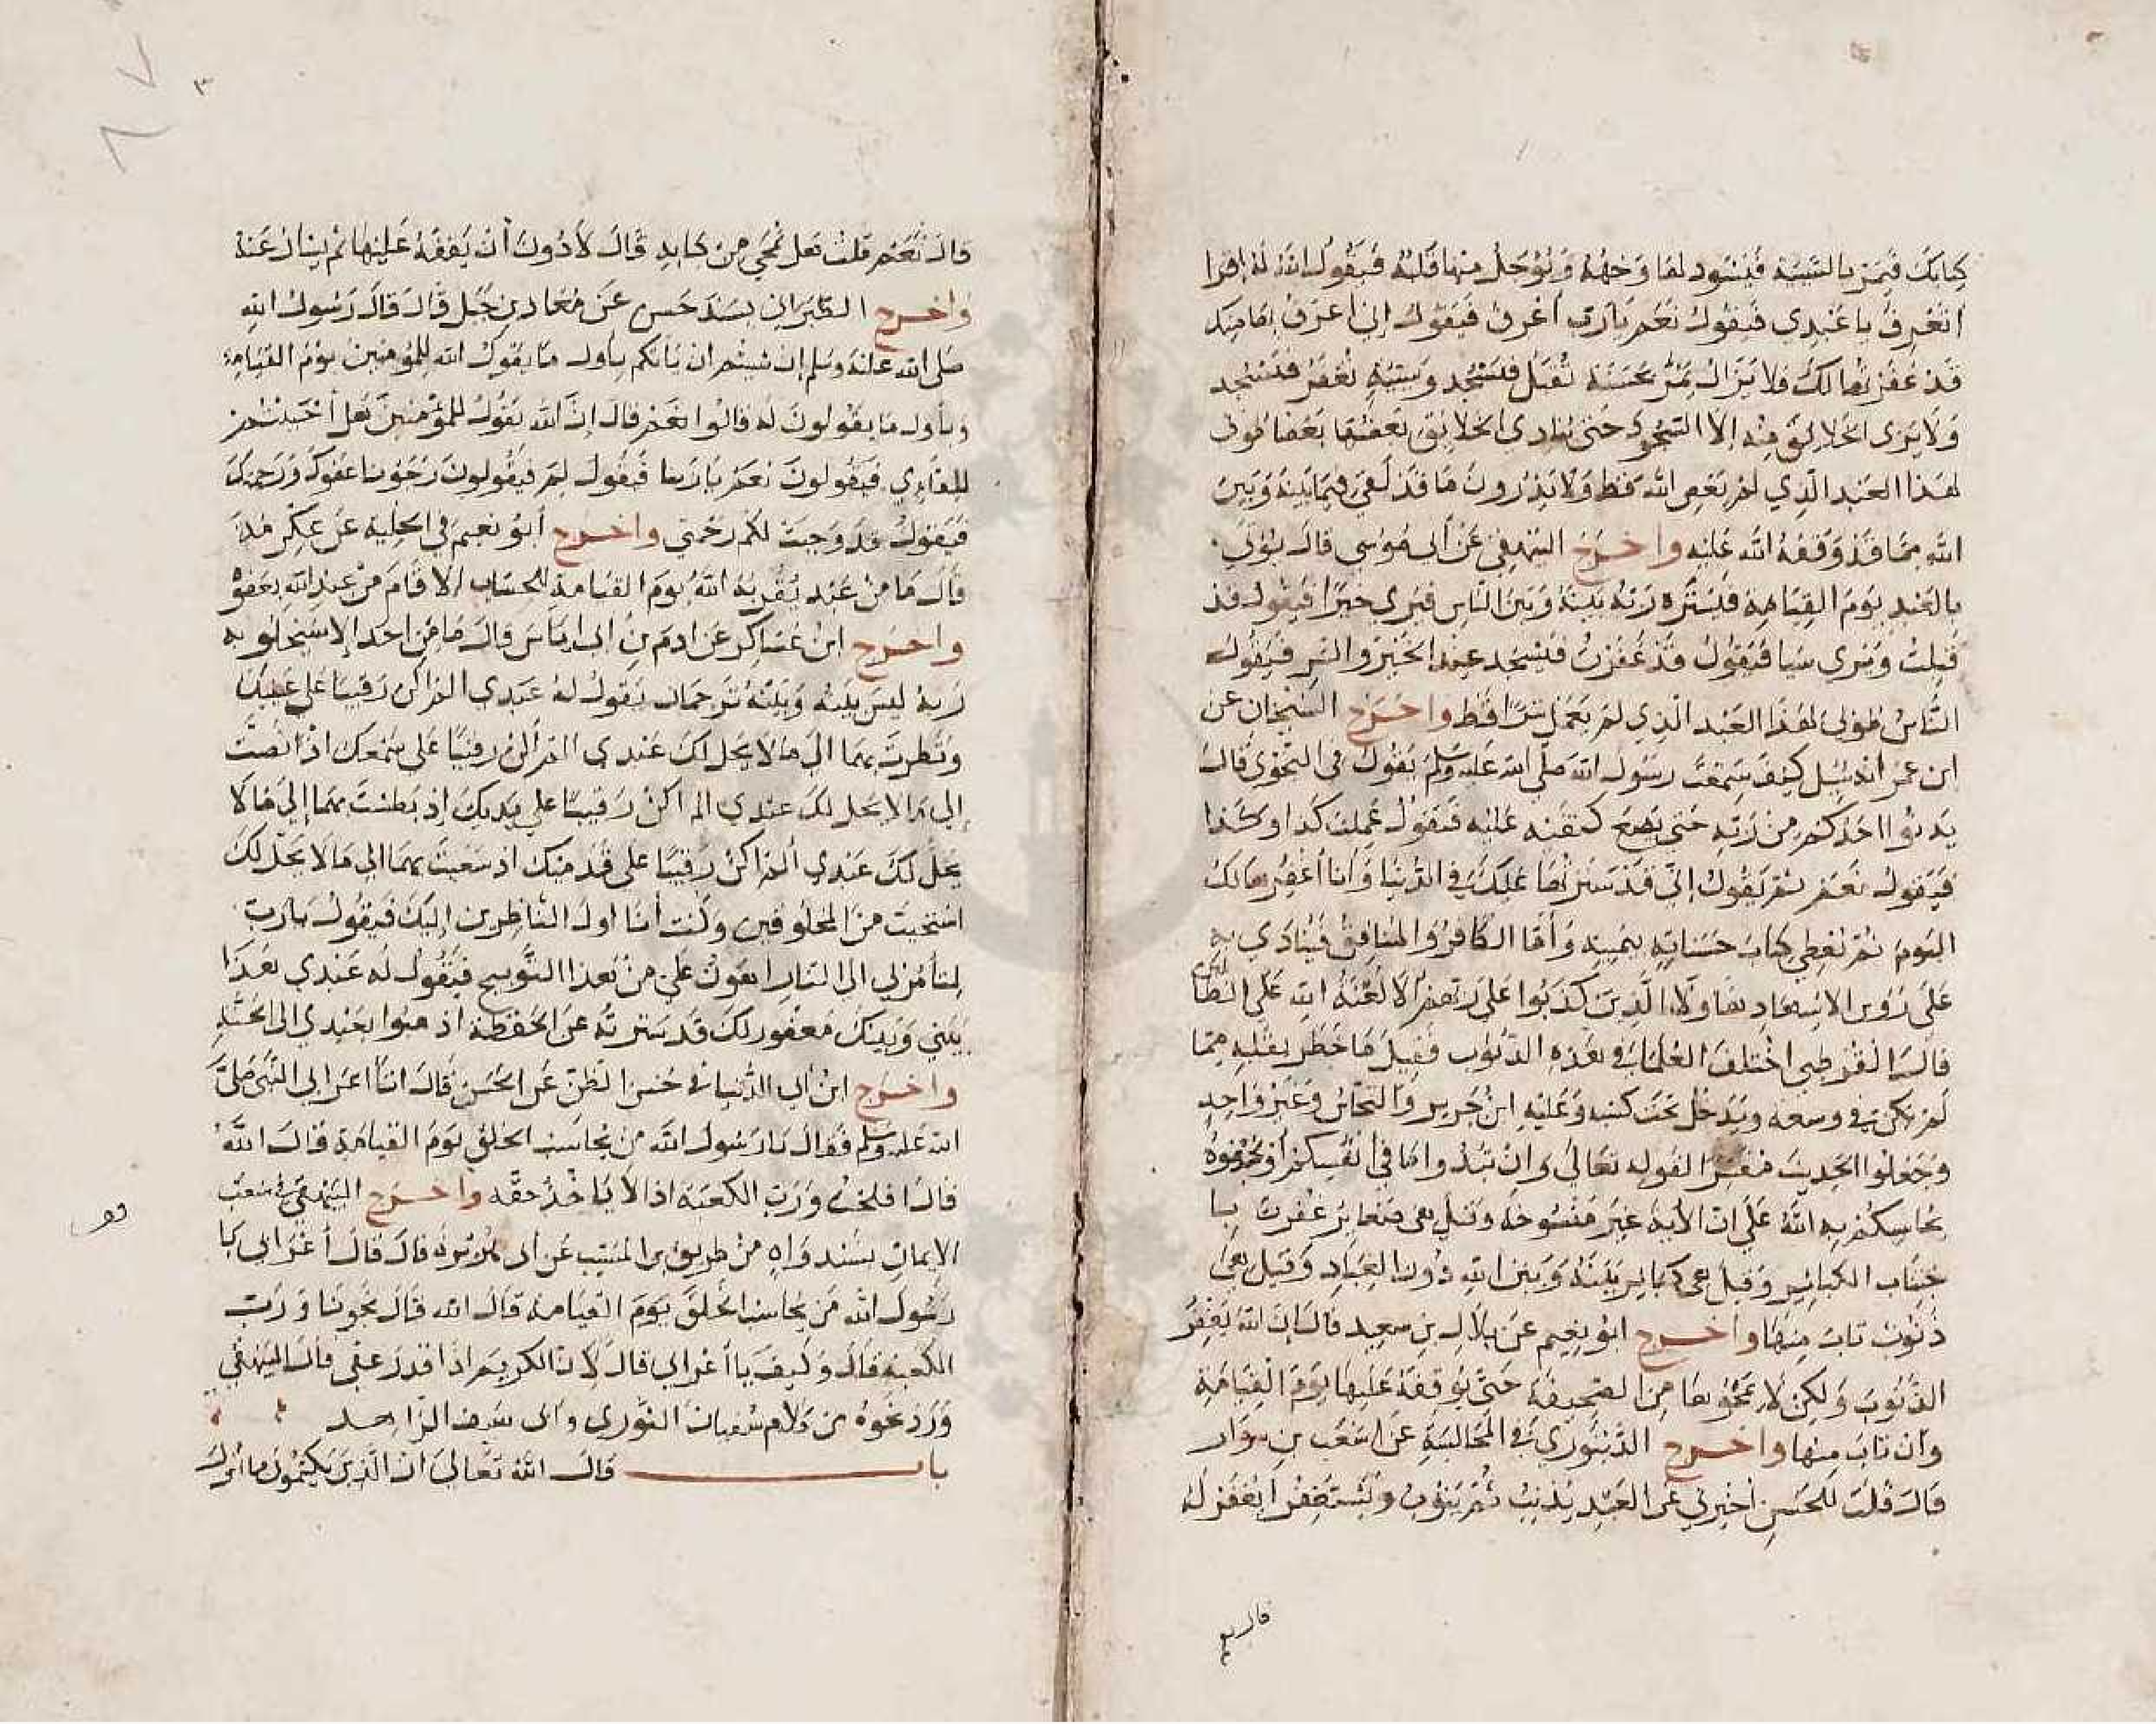 كتابك فيمر بالسيئة فيسود لها وجهه ويوجل منها قلبه فيقول الله له اقرا
اتعرف يا عبدي فيقول نعم يارب اعرف فيقول اني اعرف بها منك
قد غفرتها لك فلا يزال يمر بحسنة تقبل فيسجد وسيئة تغفر فيسجد
ولا يرى الخلايق منه الا السجود حتى ينادي الخلايق بعضها بعضا طوبى
لهذا العبد الذي لم يعص الله قط ولا يدرون ما قد لقي فيما بينه وبين
الله مما قد وقفه الله عليه واخرج البيهقي عن ابي موسى قال يوتى
بالعبد يوم القيامة فيستره ربه بينه وبين الناس فيرى خيرا فيقول قد
قبلت ويرى سيا فيقول قد غفرت فيسجد عند الخير والشر فيقول
الناس طوبى لهذا العبد الذي لم يعمل شرا قط واخرج الشيخان عن
ابن عمر انه سئل كيف سمعت رسول الله صلى الله عليه وسلم يقول في النجوى قال
يدنوا احدكم من ربه حتى يضع كنفه عليه فيقول عملت كذا وكذا
فيقول نعم ثم يقول اني قد سترتها عليك في الدنيا وانا اغفرها لك
اليوم ثم يعطى كتاب حسناته بيمينه واما الكافر والمنافق فينادي به
على روس الاشهاد هاولاء الذين كذبوا على ربهم الا لعنة الله على الظالمين
قال القرطبي اختلف العلماء في هذه الذنوب فقيل ما خطر بقلبه مما
لم يكن في وسعه ويدخل تحت كسبه وعليه ابن جرير والنحاس وغير واحد
وجعلوا الحديث مفسرا لقوله تعالى وان تبدوا ما في انفسكم او تخفوه
يحاسبكم به الله على ان الاية غير منسوخة وقيل هي صغاير غفرت با
جتناب الكباير وقيل هي كباير بينه وبين الله دون العباد وقيل هي
ذنوب تاب منها واخرج ابو نعيم عن بلال بن سعيد قال ان الله يغفر
الذنوب ولكن لا يمحوها من الصحيفة حتى يوقفه عليها يوم القيامة
وان تاب منها واخرج الدينوري في المجالسة عن اشعب بن سوار
قال قلت للحسن اخبرني عن العبد يذنب ثم يتوب ويستغفر ايغفر له
قال نعم
قال نعم قلت هل تمحي من كتابه قال لا دون ان يقفه عليها ثم يسال عنه
واخرج الطبراني بسند حسن عن معاذ بن جبل قال قال رسول الله
صلى الله عليه وسلم ان شيتم انباتكم باول ما يقول الله للمؤمنين يوم القيامة
وباول ما يقولون له قالوا نعم قال ان الله يقول للمؤمنين هل احببتم
للقاءي فيقولون نعم يا ربنا فيقول لم فيقولون رجونا عفوك ورحمتك
فيقول قد وجبت لكم رحمتي واخرج ابو نعيم في الحلية عن عكرمة
قال ما من عبد يقربه الله يوم القيامة للحساب الا قام من عند الله بعفوه
واخرج ابن عساكر عن ادم بن ابي اياس قال ما من احد الا سيخلو به
ربه ليس بينه وبينه ترجمان يقول له عبدي الم اكن رقيبا على عينيك
ونظرت بهما الى ما لا يحل لك عبدي الم اكن رقيبا على سمعك اذ انصت
الى ما لا يحل لك عبدي الم اكن رقيبا على يديك اذ بطشت بهما الى ما لا
يحل لك عبدي الم اكن رقيبا على قدميك اذ سعيت بهما الى ما لا يحل لك
استحييت من المخلوقين وكنت انا اول الناظرين اليك فيقول يارب
لتامر بي الى النار اهون علي من هذا التوبيخ فيقول له عبدي هذا
بيني وبينك مغفور لك قد سترته عن الحفظة اذهبوا بعبدي الى الجنة
واخرج ابن ابي الدنيا في حسن الظن عن الحسن قال اتا اعرابي النبي صلى
الله عليه وسلم فقال يا رسول الله من يحاسب الخلق يوم القيامة قال الله
قال افلحت ورب الكعبة اذا لا ياخذ حقه واخرج البيهقي في شعب
الايمان بسند واه من طريق عن ابي هريرة قال قال اعرابي يا
رسول الله من يحاسب الخلق يوم القيامة قال الله قال نجونا ورب
الكعبة قال وكيف يا اعرابي قال لان الكريم اذا قدر عفى قال البيهقي
وورد نحوه من كلام سفيان الثوري الزاهد
باب قال الله تعالى ان الذين يكتمون ما انزل